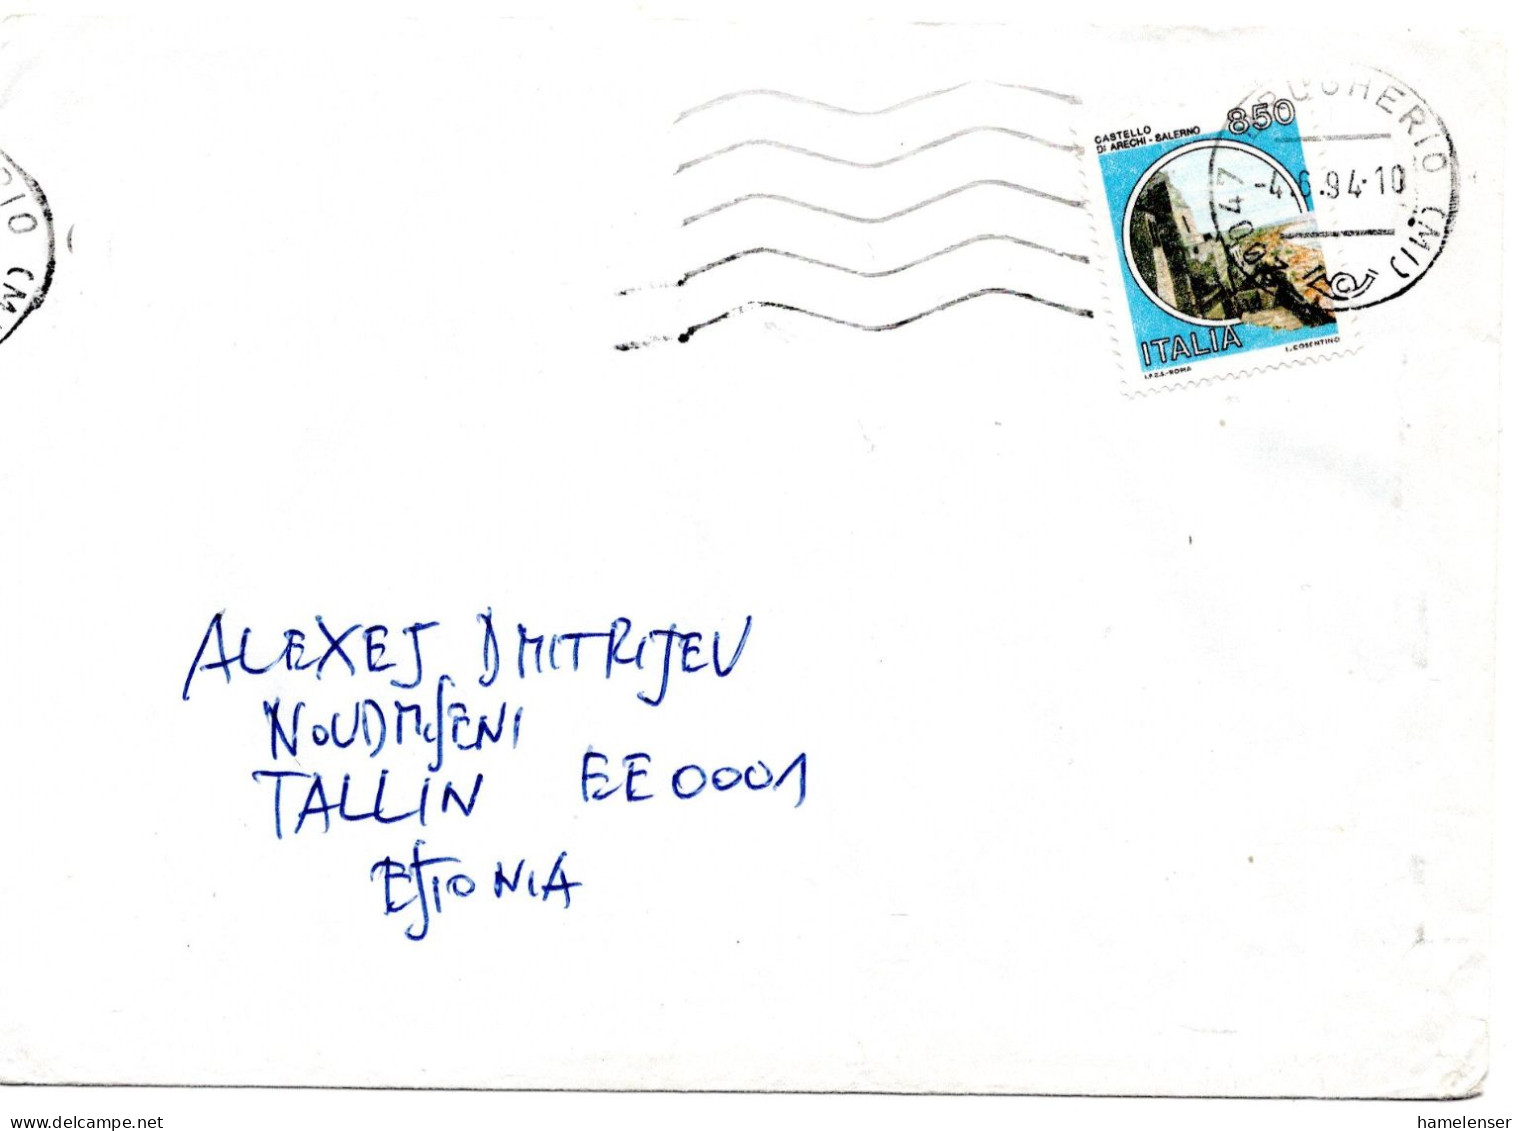 850
CASTELLO
DI ARECHI - SALERNO
ITALIA
I.P.Z.S.-ROMA
L. COSENTINO
20047 BRUGHERIO (MI)
-4.6.94-10
RIO (M
ALEXEJ DMITRIJEV
NOUDMSENI
TALLIN EE0001
ESTONIA
www.delcampe.net
hamelenser